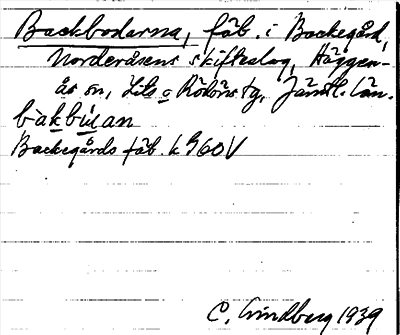 Backbodarna, fäb. i Backegård,
Norderåsens skifteslag, Häggen-
ås sn, Lits o Rödöns tg, Jämtl. län.
bakbúan
Backegårds fäb. k G60V
C. Lindberg 1939